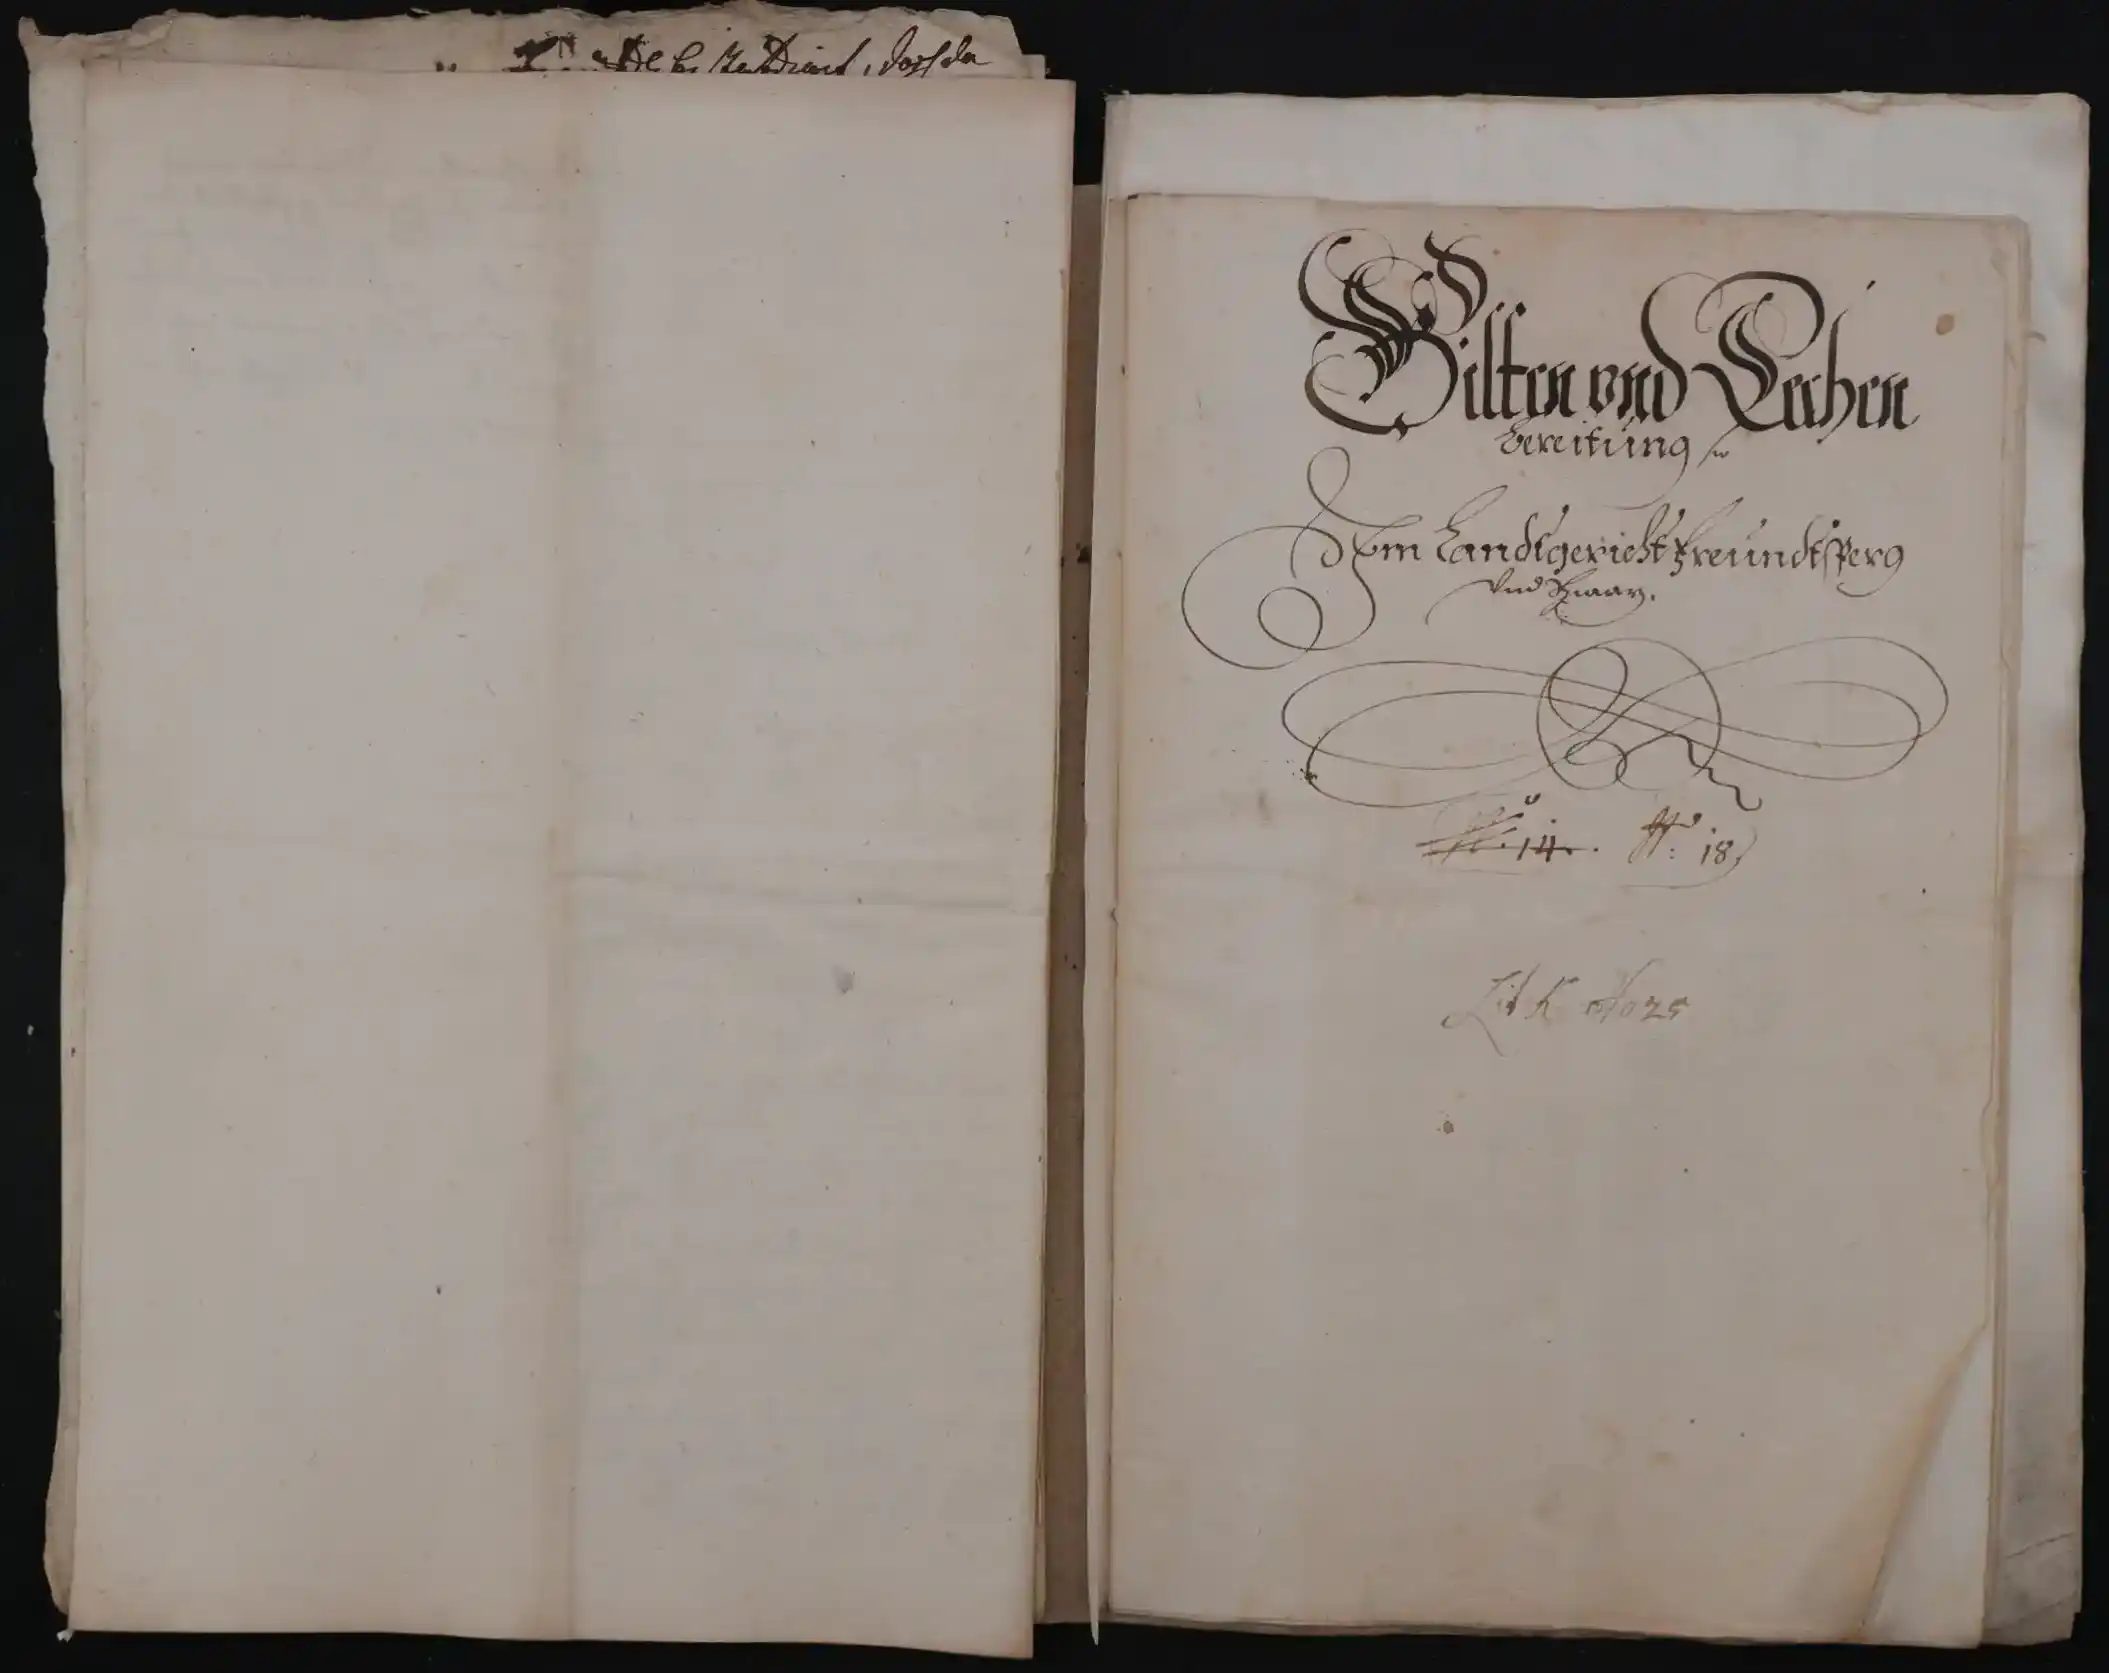 Gilten und Lechen
bereitung
Im Landtgericht Freundtsperg
vnd
14. 18
Lit K No 25